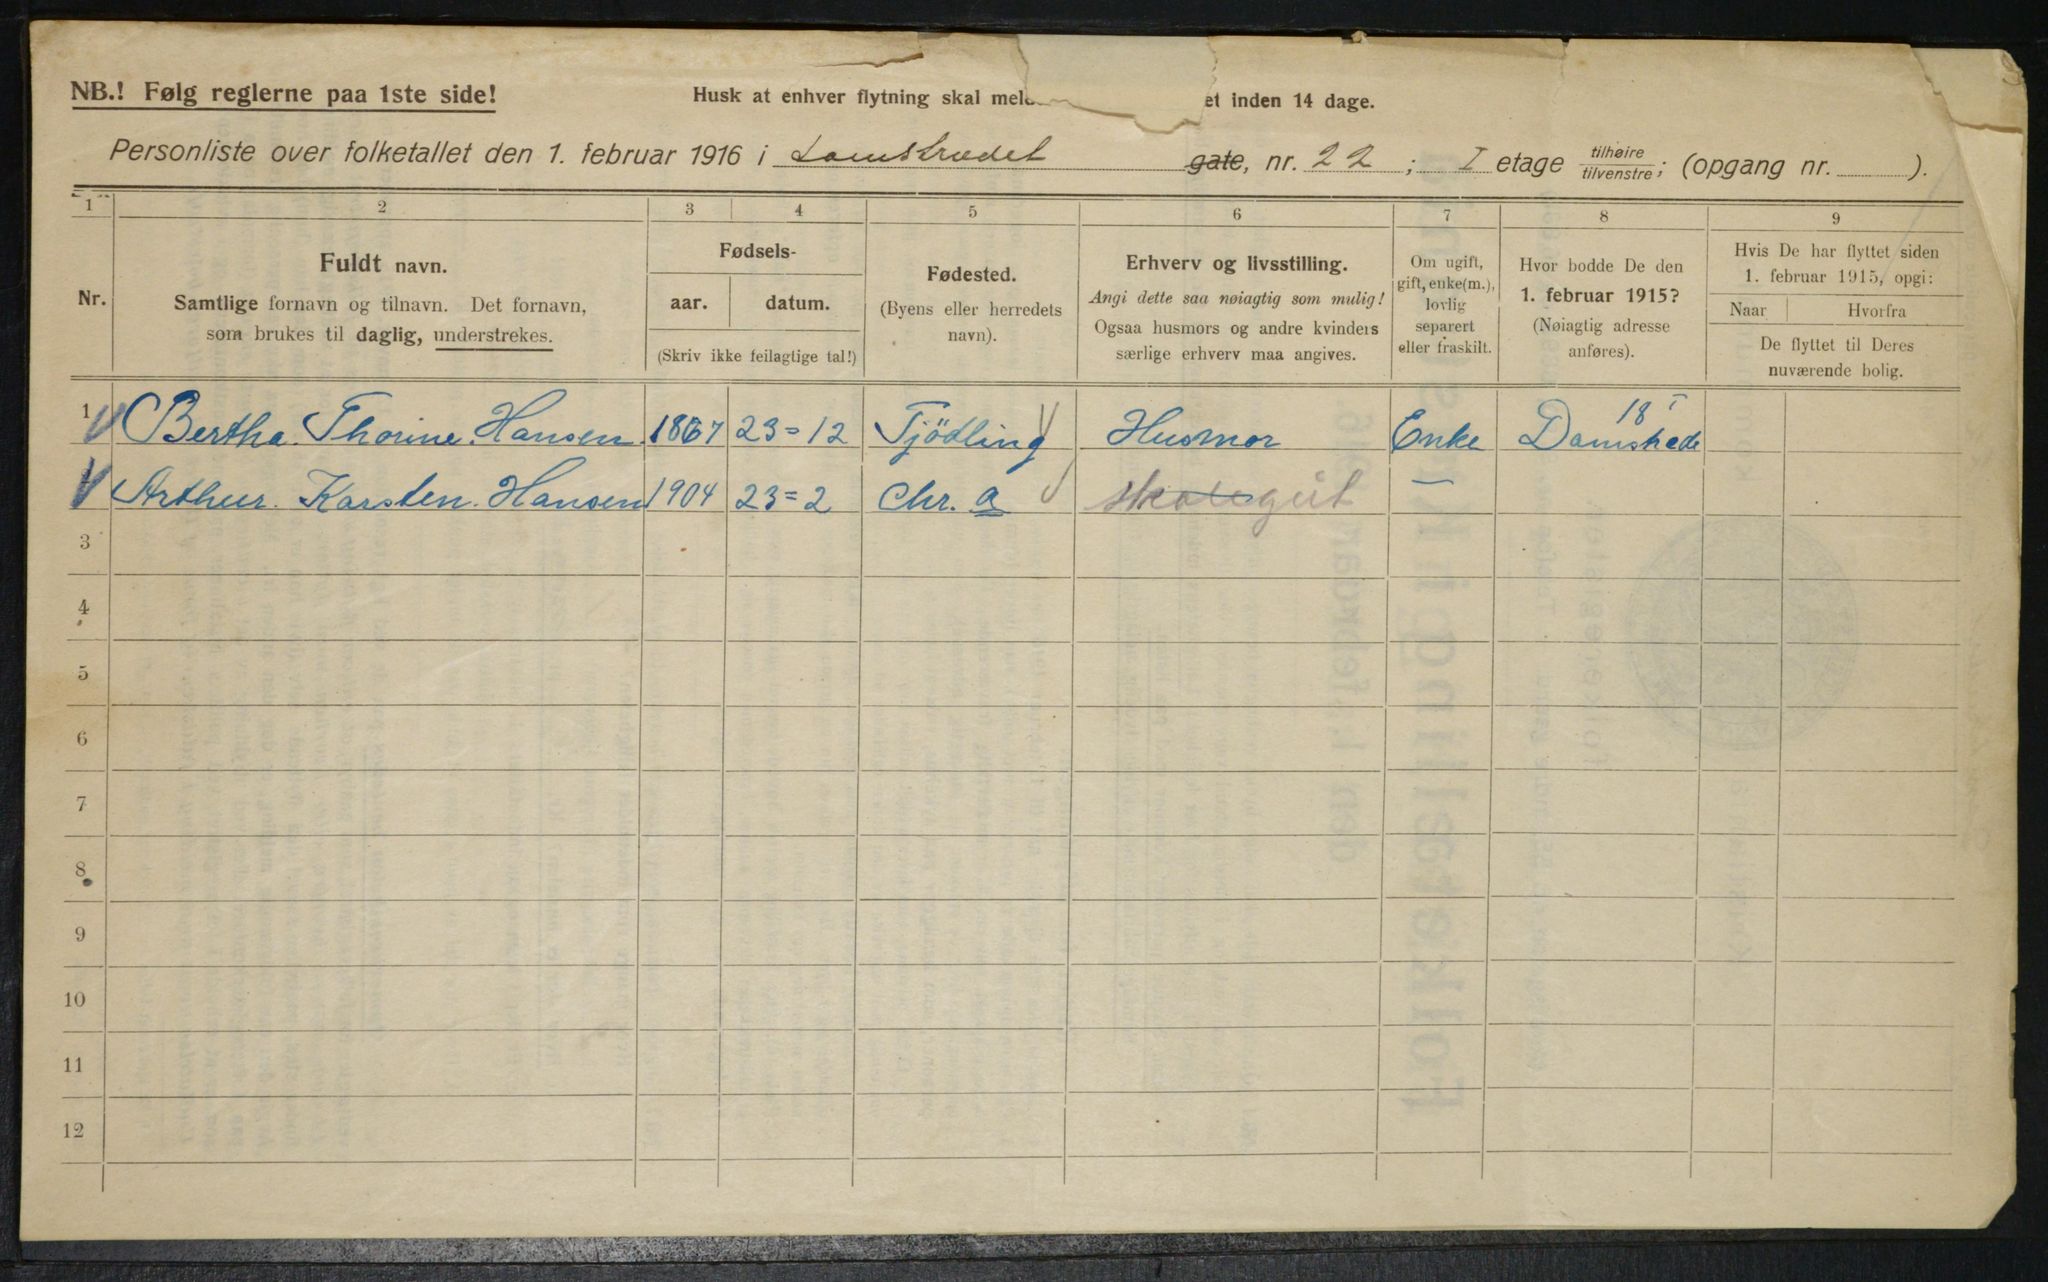 NB.! Følg reglerne paa 1ste side!
Husk at enhver flytning skal meld et inden 14 dage.
Personliste over folketallet den 1. februar 1916 i Damstrædet gate, nr. 22; I etage tilhøire tilvenstre; (opgang nr. ).
1 2 3 4 5 6 7 8 9
Nr.
Fuldt navn.
Samtlige fornavn og tilnavn. Det fornavn,
som brukes til daglig, understrekes.
Fødsels-
aar. datum.
(Skriv ikke feilagtige tal!)
Fødested.
(Byens eller herredets
navn).
Erhverv og livsstilling.
Angi dette saa nøiagtig som mulig!
Ogsaa husmors og andre kvinders
særlige erhverv maa angives.
Om ugift,
gift, enke(m.),
lovlig
separert
eller fraskilt.
Hvor bodde De den
1. februar 1915?
(Nøiagtig adresse
anføres).
Hvis De har flyttet siden
1. februar 1915, opgi:
Naar Hvorfra
De flyttet til Deres
nuværende bolig.
1 Bertha. Thorine. Hansen. 1867 23=12 Tjödling Husmor Enke 18 I
Arthur. Karsten. Hansen 1904 23=2 Chr. a skolegut —
3
4
5
6
7
8
9
10
11
12